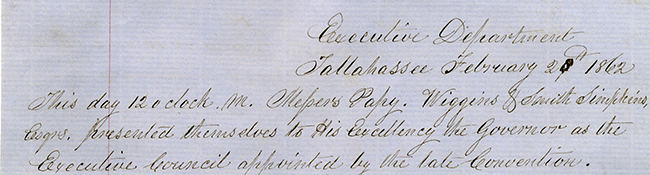 Executive Department
Tallahassee February 28th 1862
This day 12 oclock. M. Messers Papy. Wiggins & Smith Simpkins,
Esqrs. presented themselves to His Excellency the Governor as the
Executive Council appointed by the late Convention.